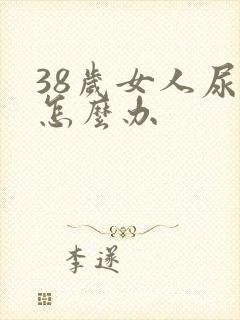 38歲女人尿
怎麼办
李遂